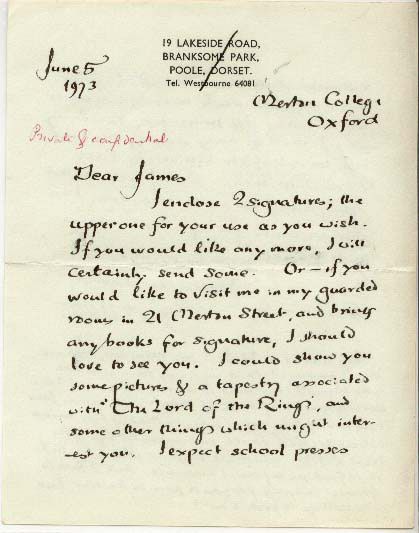 19 LAKESIDE ROAD,
BRANKSOME PARK,
POOLE, DORSET.
Tel. Westbourne 64081
June 5
1973
Merton College
Oxford
Private & confidential
Dear James
I enclose 2 signatures; the
upper one for your use as you wish.
If you would like any more, I will
certainly send some. Or – if you
would like to visit me in my guarded
rooms in 21 Merton Street, and bring
any books for signature, I should
love to see you. I could show you
some pictures & a tapestry associated
with "The Lord of the Rings", and
some other things which might inter-
-est you. I expect school presses